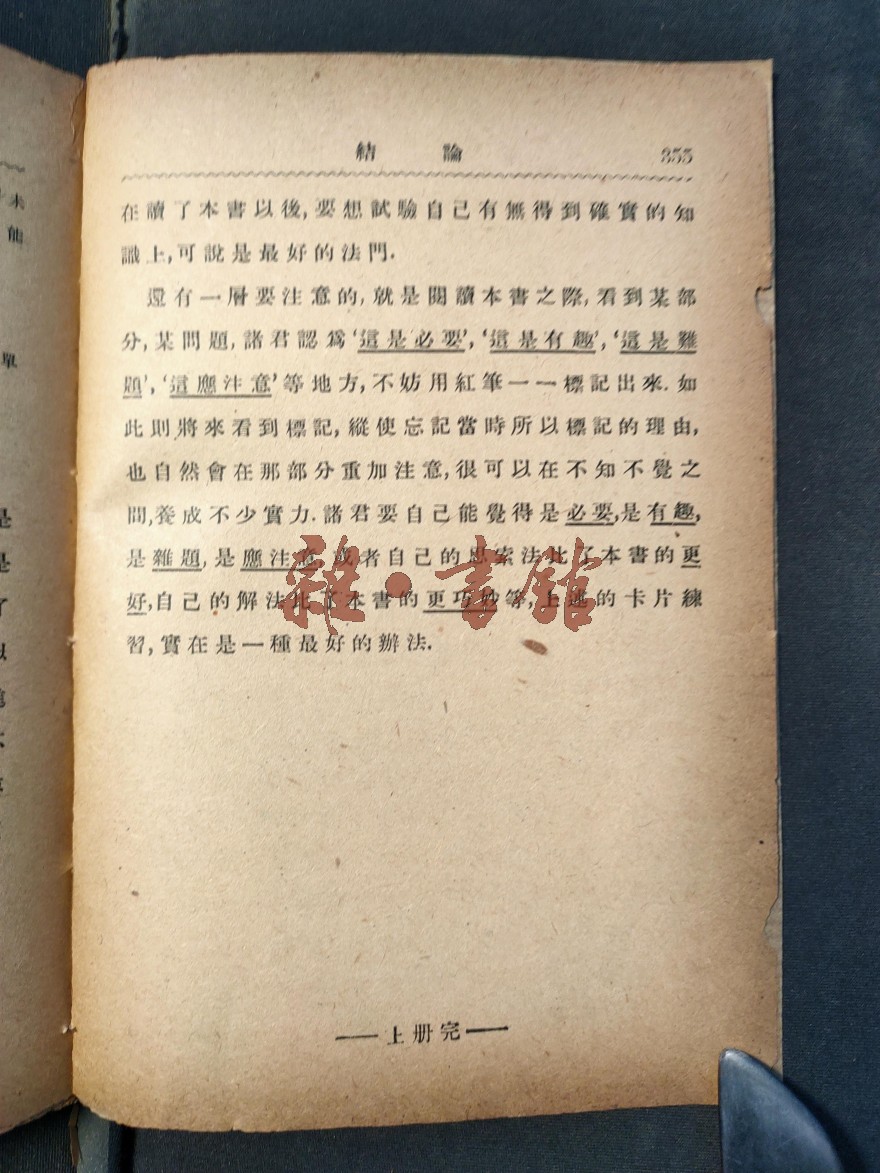 結 論 355
在讀了本書以後,要想試驗自己有無得到確實的知
識上,可說是最好的法門.
還有一層要注意的,就是閱讀本書之際,看到某部
分,某問題,諸君認爲‘這是必要’,‘這是有趣’,‘這是難
題’,‘這應注意’等地方,不妨用紅筆一一標記出來.如
此則將來看到標記,縱使忘記當時所以標記的理由,
也自然會在那部分重加注意,很可以在不知不覺之
間,養成不少實力.諸君要自己能覺得是必要,是有趣,
是難題,是應注意,或者自己的思索法比了本書的更
好,自己的解法比了本書的更巧妙等,上述的卡片練
習,實在是一種最好的辦法.
雜·書館
——上册完——
未
能
單
是
是
了
以